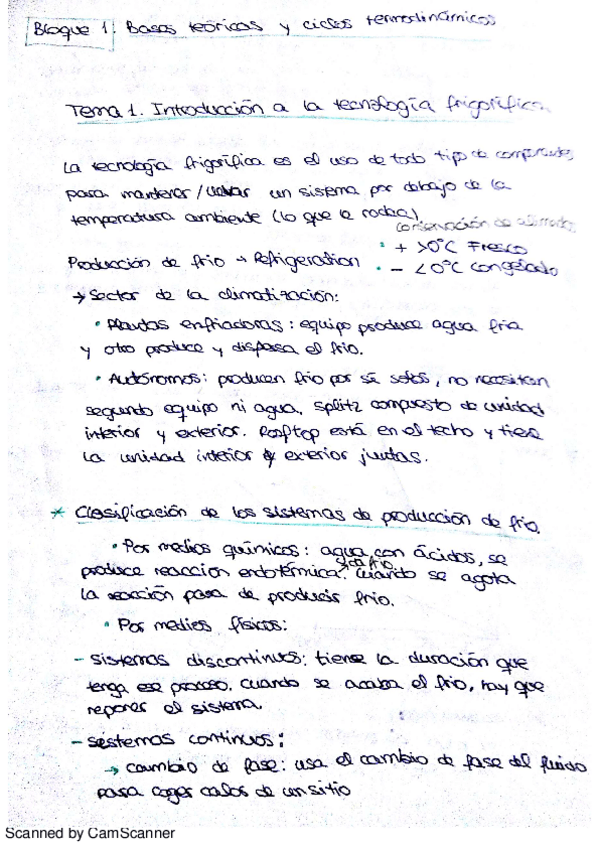 Bloque 1. Bases teóricas y ciclos termodinámicos
Tema 1. Introducción a la tecnología frigorífica.
La tecnología frigorífica es el uso de todo tipo de
para mantener / un sistema por debajo de la
temperatura ambiente (lo que le rodea).
conservación de alimentos
Producción de frío → Refrigeration • + >0ºC Fresco
• - <0ºC congelado
→ Sector de la climatización:
• Plantas enfriadoras: equipo produce agua fría
y otro produce y dispersa el frío.
• Autónomos: producen frío por sí solos, no necesitan
segundo equipo ni agua. Splitz compuesto de unidad
interior y exterior. Rooftop está en el techo y tiene
la unidad interior y exterior juntas.
* Clasificación de los sistemas de producción de frío.
• Por medios químicos: agua con ácidos, se
produce reacción endotérmica. Cuando se agota
la reacción para de producir frío.
• Por medios físicos:
- sistemas discontinuos: tiene la duración que
tenga ese proceso. Cuando se acaba el frío, hay que
reponer el sistema.
- sistemas continuos:
→ cambio de fase: usa el cambio de fase del fluido
para coger calor de un sitio
Scanned by CamScanner